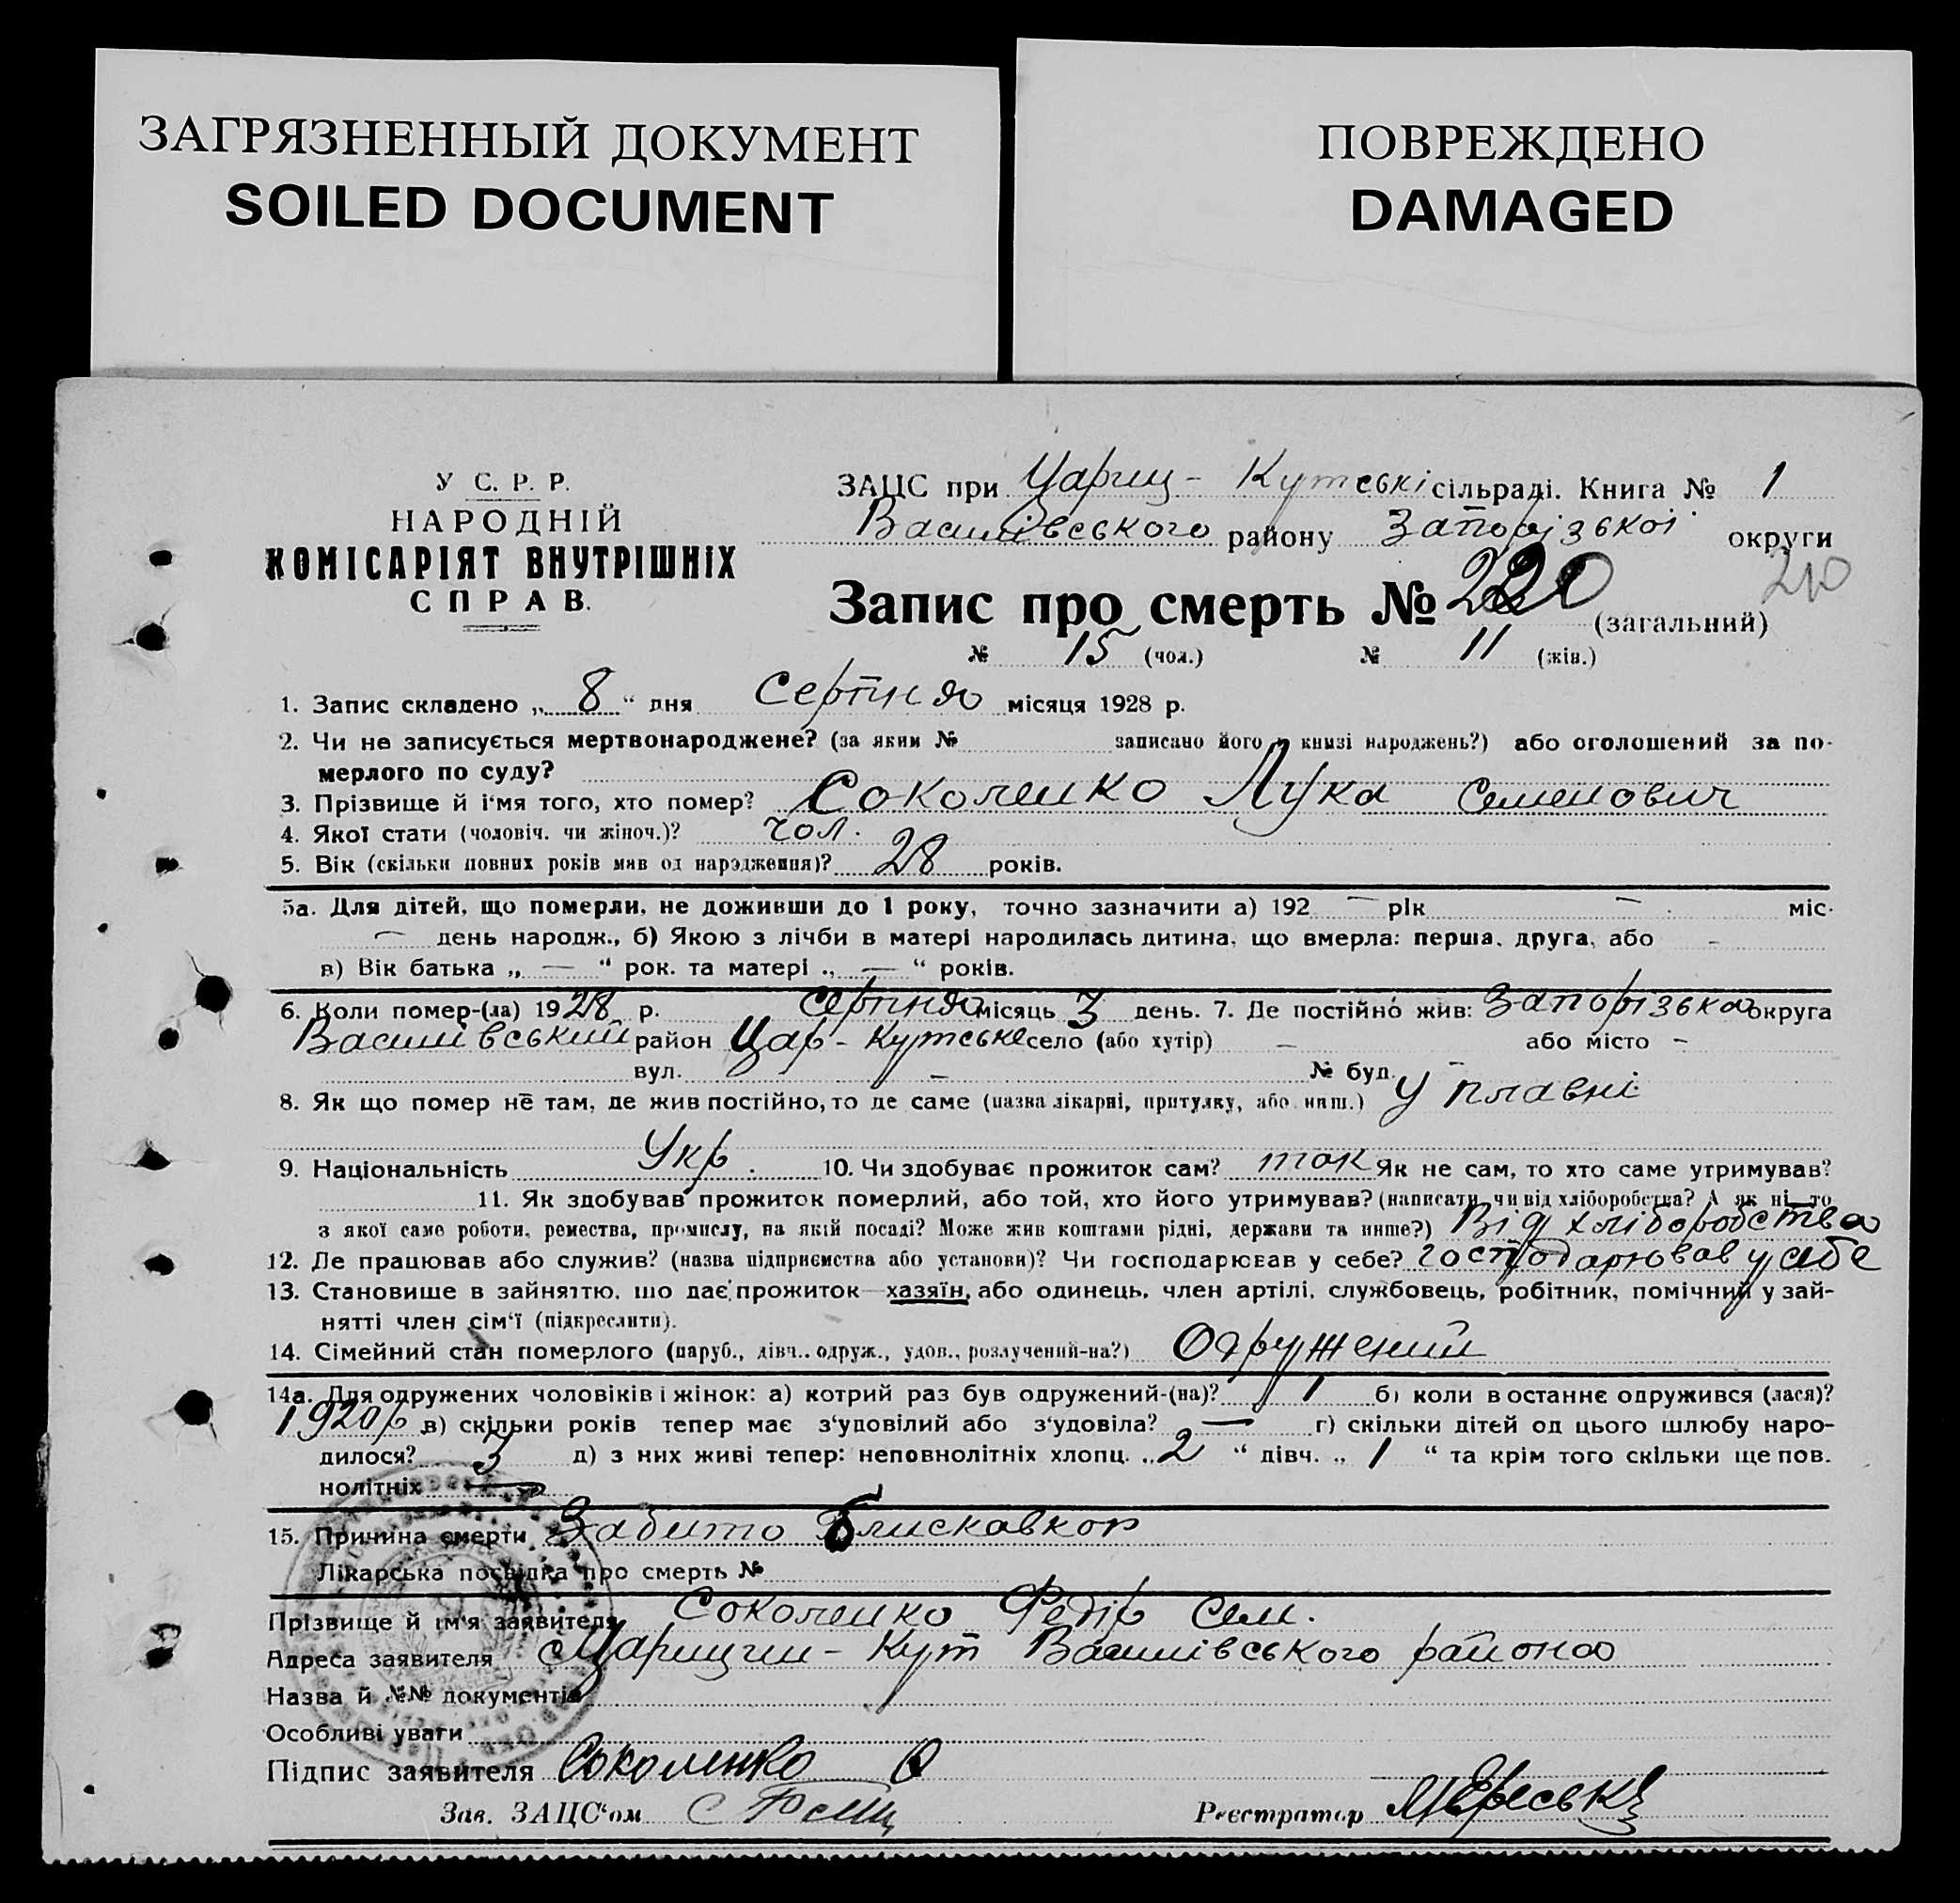 ЗАГРЯЗНЕННЫЙ ДОКУМЕНТ
SOILED DOCUMENT
ПОВРЕЖДЕНО
DAMAGED
У С. Р. Р.
НАРОДНІЙ
КОМІСАРІЯТ ВНУТРІШНІХ
СПРАВ.
ЗАЦС при Цариц - Кутські сільраді. Книга № 1
Василівського району Запорізької округи
Запис про смерть № 220 (загальний) 210
№ 15 (чол.) № 11 (жін.)
1. Запис складено „ 8 “ дня Серпня місяця 1928 р.
2. Чи не записується мертвонароджене? (за яким № записано його в книзі народжень?) або оголошений за по-
мерлого по суду?
3. Прізвище й і‘мя того, хто помер? Соколенко Лука Семенович
4. Якої стати (чоловіч. чи жіноч.)? чол.
5. Вік (скільки повних років мав од народження)? 28 років.
5а. Для дітей, що померли, не доживши до 1 року, точно зазначити а) 192 — рік — міс.
— день народж., б) Якою з лічби в матері народилась дитина, що вмерла: перша, друга, або -
в) Вік батька „ — “ рок. та матері „ — “ років.
6. Коли помер-(ла) 1928 р. серпня місяць 3 день. 7. Де постійно жив: Запорізька округа
Василівський район Цар - Кутське село (або хутір) - або місто -
вул. - № буд. -
8. Як що помер не там, де жив постійно, то де саме (назва лікарні, притулку, або инш.) у плавні
9. Національність Укр. 10. Чи здобуває прожиток сам? так Як не сам, то хто саме утримував?
11. Як здобував прожиток померлий, або той, хто його утримував? (написати, чи від хліборобства? А як ні, то
з якої саме роботи, ремества, промислу, на якій посаді? Може жив коштами рідні, держави та инше?) Від хліборобства
12. Де працював або служив? (назва підприємства або установи)? Чи господарював у себе? господарював у себе
13. Становище в зайняттю, що дає прожиток—хазяїн, або одинець, член артілі, службовець, робітник, помічний у зай-
нятті член сім‘ї (підкреслити).
14. Сімейний стан померлого (паруб., дівч., одруж., удов., розлучений-на?) Одружений
14а. Для одружених чоловіків і жінок: а) котрий раз був одружений-(на)? 1 б) коли в останнє одружився (лася)?
1920 р. в) скільки років тепер має з‘удовілий або з‘удовіла? — г) скільки дітей од цього шлюбу наро-
дилося? 3 д) з них живі тепер: неповнолітніх хлопц. „ 2 “ дівч. „ 1 “ та крім того скільки ще пов.
нолітніх —
15. Причина смерти Забито Блискавкою
Лікарська посвідка про смерть №
Прізвище й ім‘я заявителя Соколенко Федір Сем.
Адреса заявителя Царицин - Кут Василівського района
Назва й №№ документів
Особливі уваги
Підпис заявителя Соколенко Ф
Зав. ЗАЦС‘ом
Реєстратор